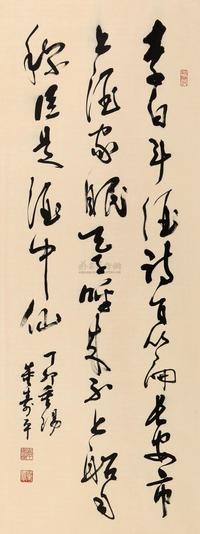 李白斗酒诗百篇长安市
上酒家眠天子呼来不上船自
称臣是酒中仙
丁卯重阳
董寿平